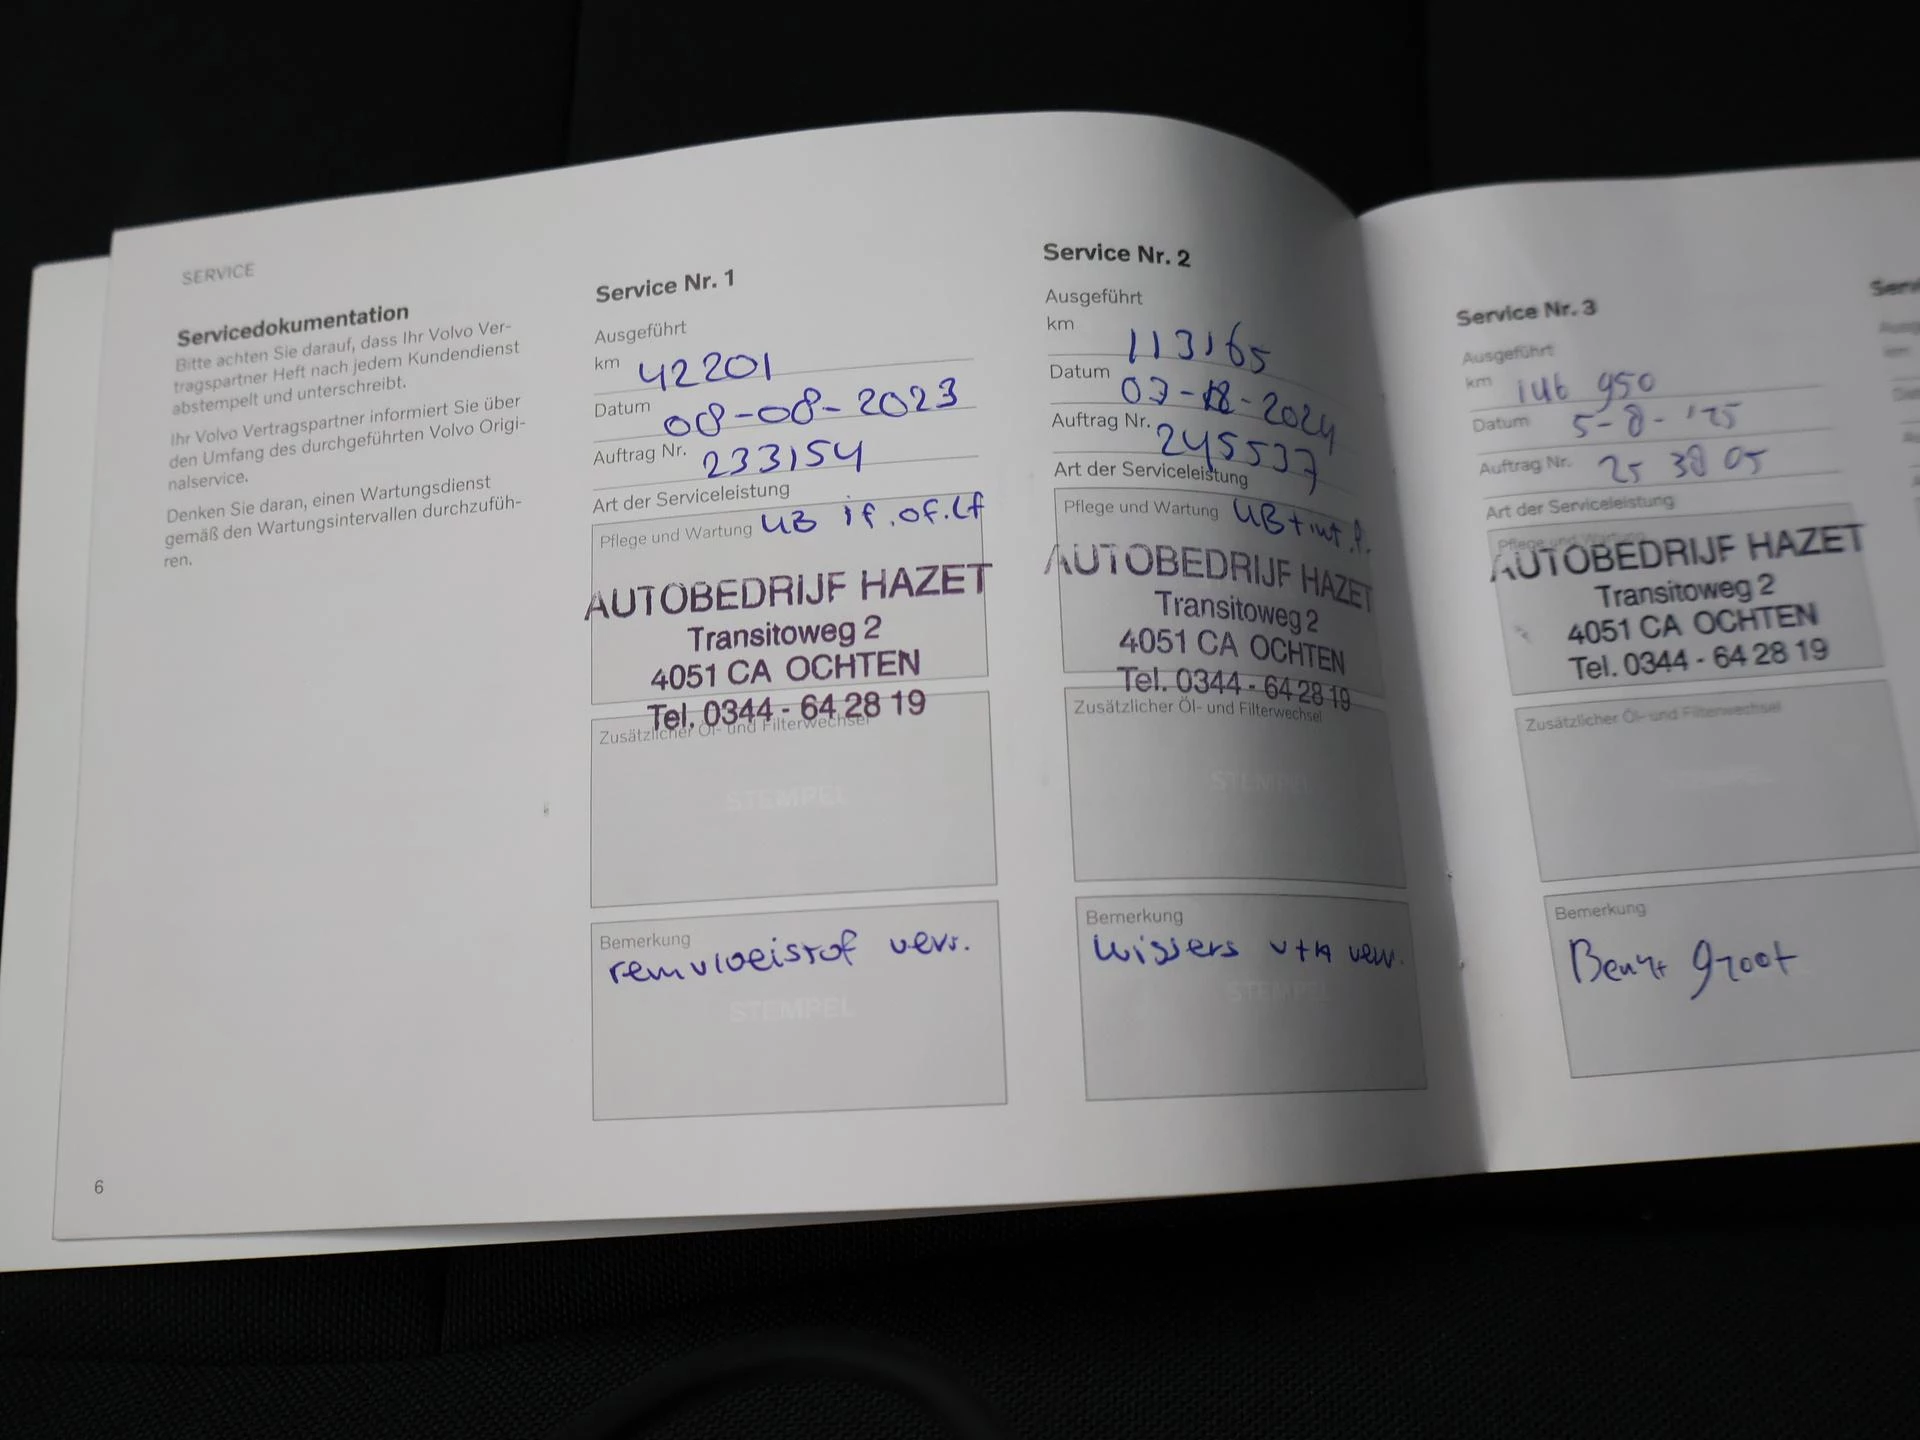 SERVICE
Servicedokumentation
Bitte achten Sie darauf, dass Ihr Volvo Ver-
tragspartner Heft nach jedem Kundendienst
abstempelt und unterschreibt.
Ihr Volvo Vertragspartner informiert Sie über
den Umfang des durchgeführten Volvo Origi-
nalservice.
Denken Sie daran, einen Wartungsdienst
gemäß den Wartungsintervallen durchzufüh-
ren.
6
Service Nr. 1
Ausgeführt
km 42201
Datum 08-08-2023
Auftrag Nr. 233154
Art der Serviceleistung
Pflege und Wartung UB if.of.lf
AUTOBEDRIJF HAZET
Transitoweg 2
4051 CA OCHTEN
Tel. 0344 - 64 28 19
Zusätzlicher Öl- und Filterwechsel
STEMPEL
Bemerkung
remvloeistof verv.
STEMPEL
Service Nr. 2
Ausgeführt
km 113165
Datum 2024
Auftrag Nr. 245537
Art der Serviceleistung
Pflege und Wartung UB+int.f.
AUTOBEDRIJF HAZET
Transitoweg 2
4051 CA OCHTEN
Tel. 0344 - 64 28 19
Zusätzlicher Öl- und Filterwechsel
STEMPEL
Bemerkung
wissers v+A verv.
STEMPEL
Service Nr. 3
Ausgeführt
km 146 950
Datum 5-8-'25
Auftrag Nr. 25 38 05
Art der Serviceleistung
Pflege und Wartung
AUTOBEDRIJF HAZET
Transitoweg 2
4051 CA OCHTEN
Tel. 0344 - 64 28 19
Zusätzlicher Öl- und Filterwechsel
Bemerkung
Beurt groot